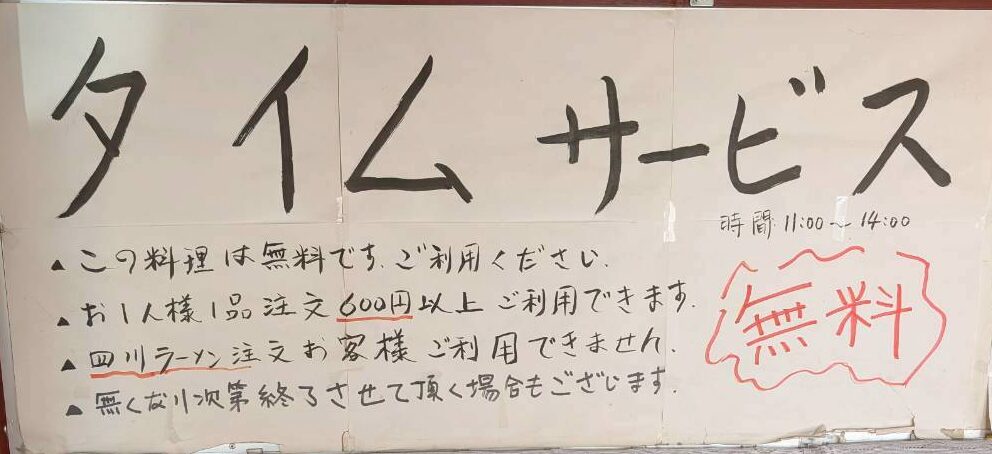 タイムサービス
時間 11:00〜14:00
▲この料理は無料です。ご利用ください。
▲お1人様1品注文600円以上ご利用できます。
▲四川ラーメン注文お客様ご利用できません。
▲無くなり次第終了させて頂く場合もございます。
無料